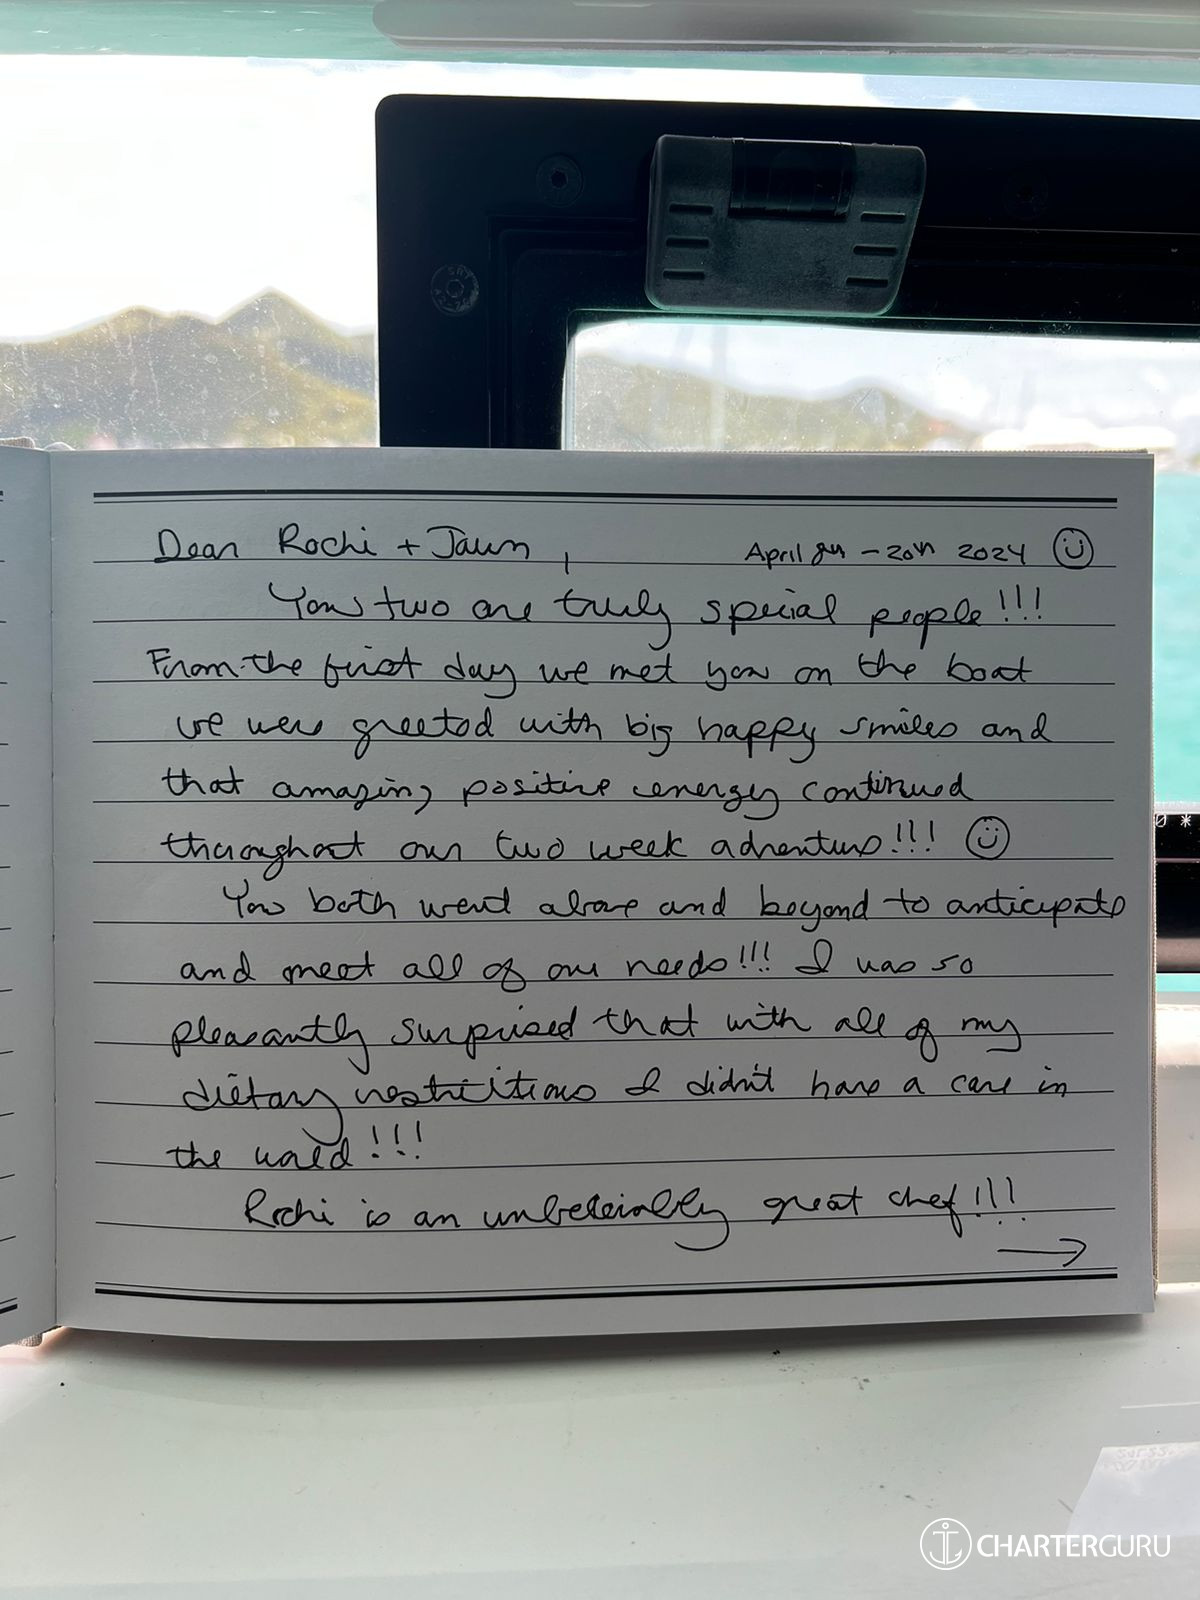 Dear Rochi + Jaun,
April 8th - 20th 2024
You two are truly special people!!!
From the first day we met you on the boat
we were greeted with big happy smiles and
that amazing positive energy continued
throughout our two week adventure!!!
You both went above and beyond to anticipate
and meet all of our needs!!! I was so
pleasantly surprised that with all of my
dietary restrictions I didn't have a care in
the world!!!
Rochi is an unbeleivably great chef!!!
CHARTERGURU